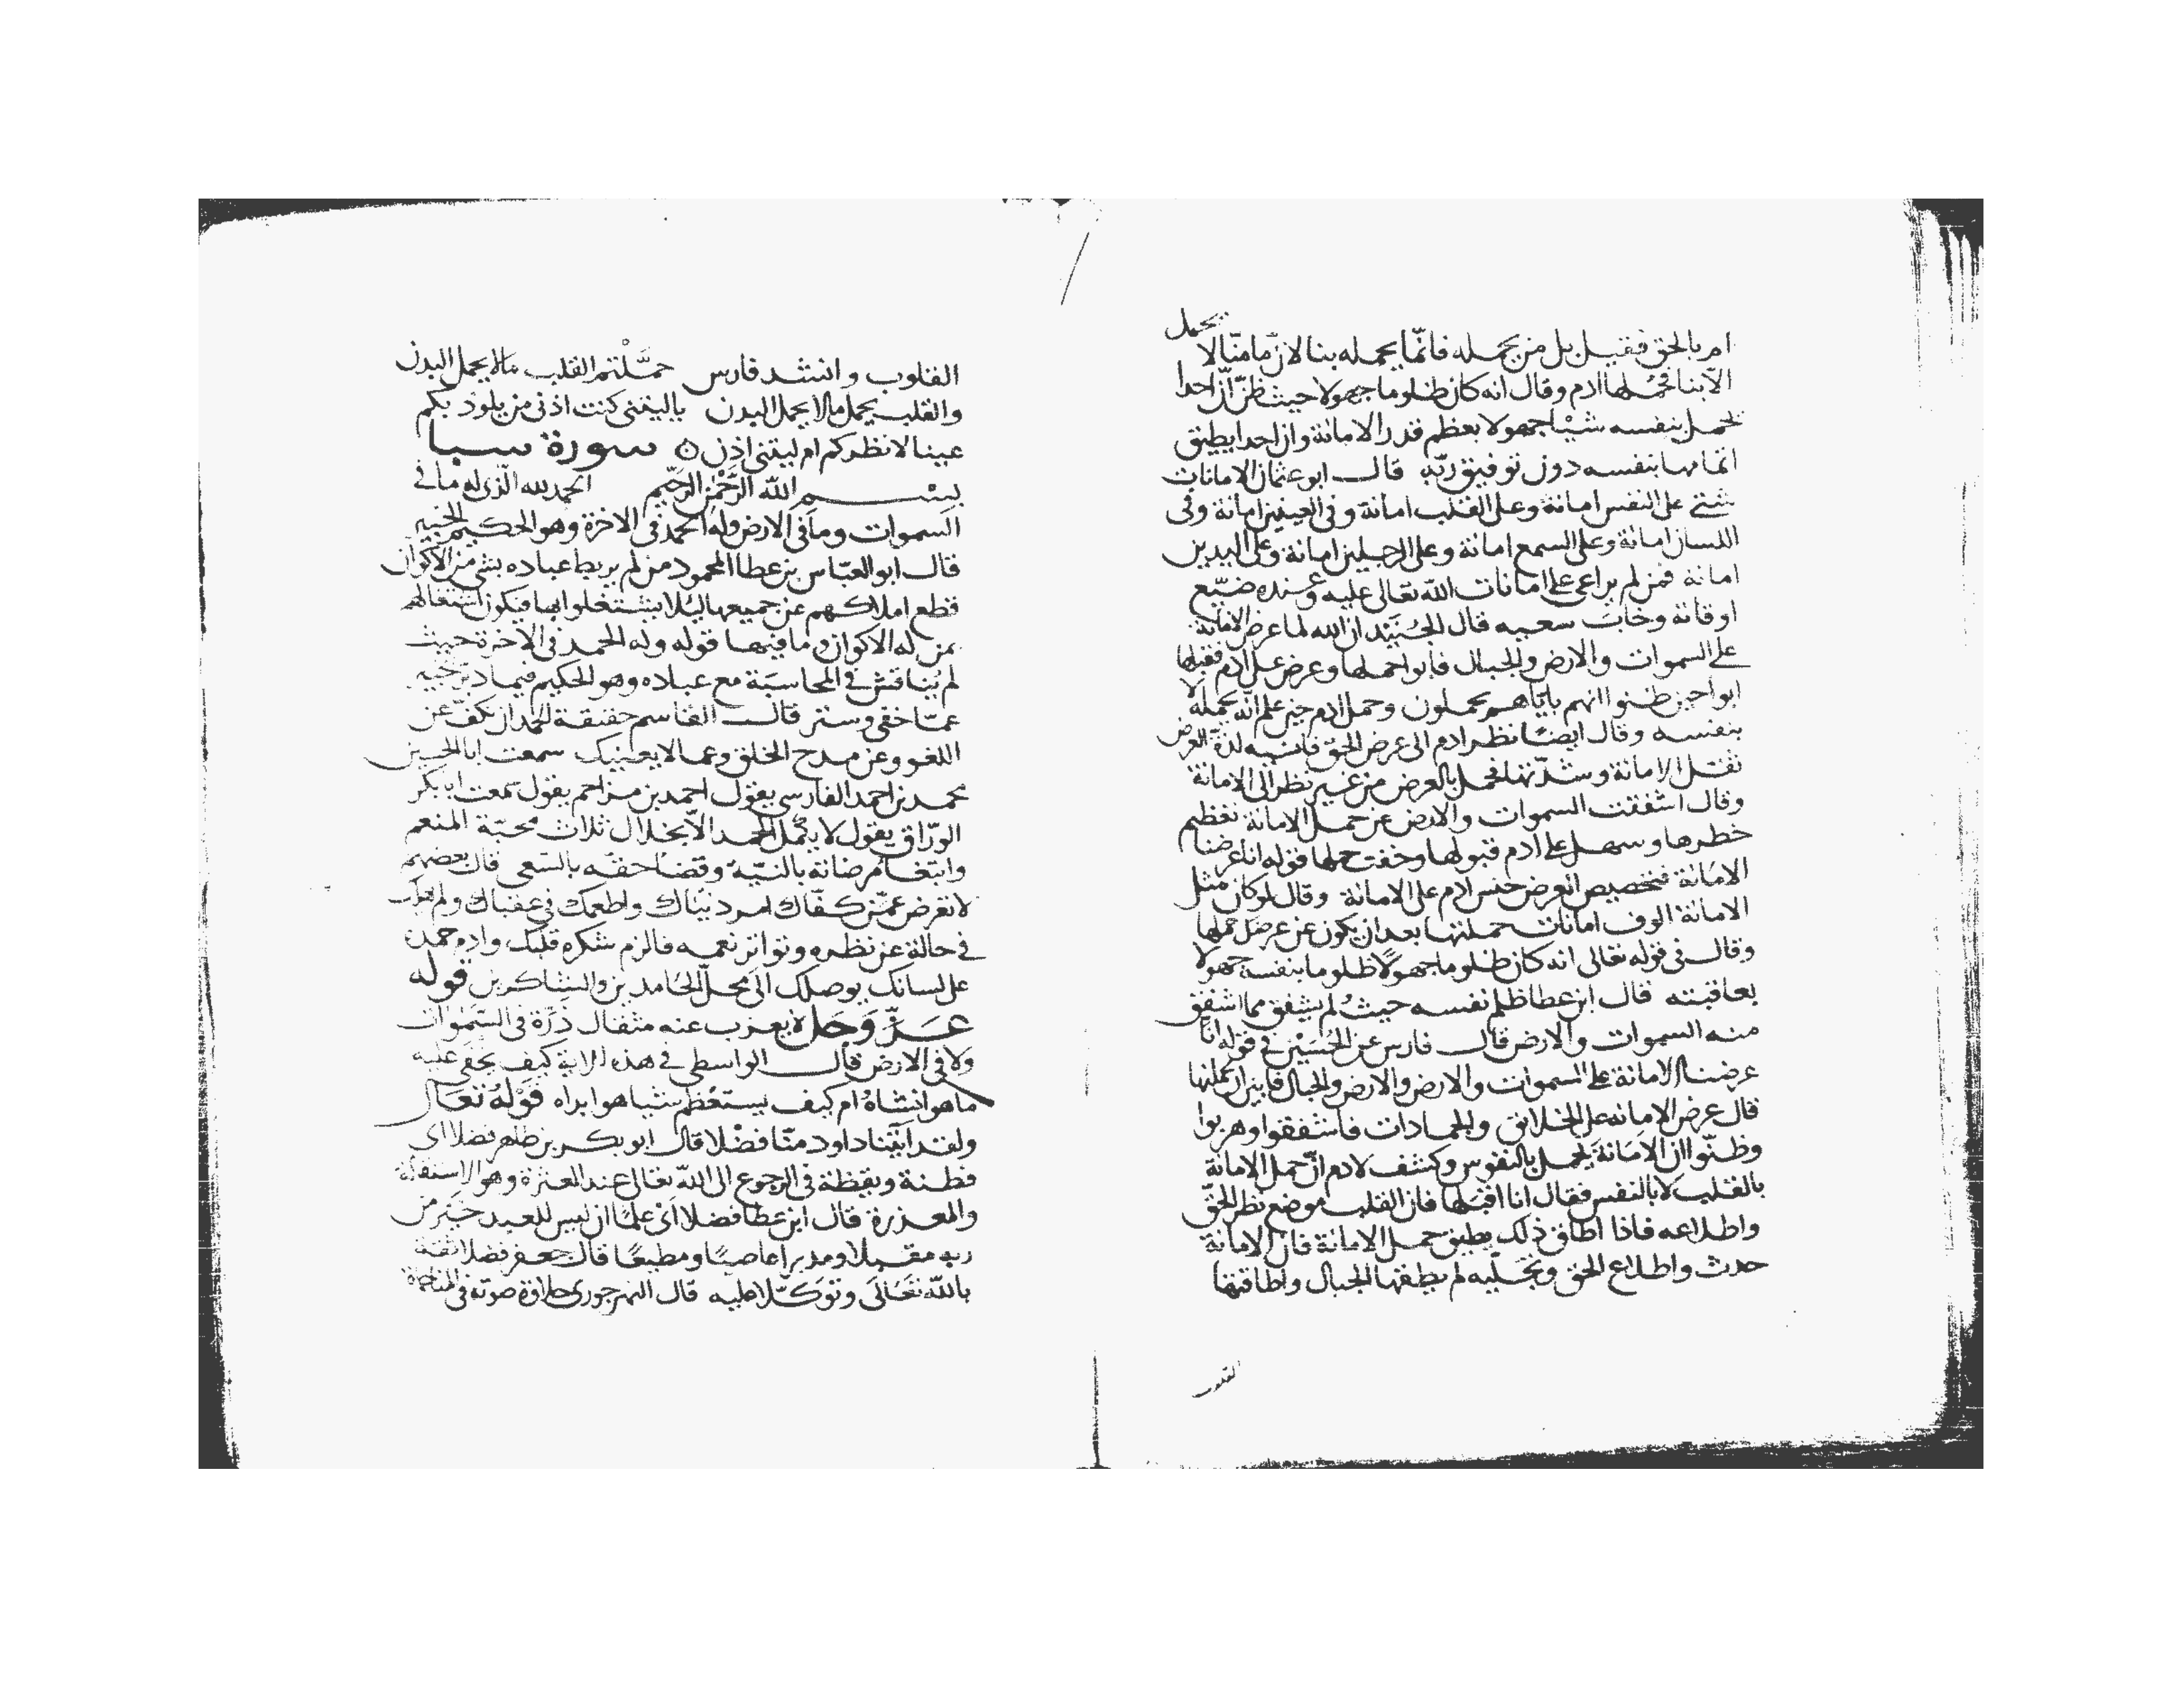 ام بالحق فقيل بل من يحمله فانما يحمله بنا لان ما منا لا يحمل
الا بنا فحملها ادم وقال انه كان ظلوما جهولا حيث ظن ان احدا
يحمل بنفسه شيئا جهولا بعظم قدر الامانة وان احدا يطيق
اتمامها بنفسه دون توفيق ربه قال ابو عثمان الامانات
شتى على النفس امانة وعلى القلب امانة وفى العينين امانة وفى
اللسان امانة وعلى السمع امانة وعلى الرجلين امانة وعلى اليدين
امانة فمن لم يراعى على امانات الله تعالى عليه وعنده ضيع
اوقاته وخاب سعيه قال الجنيد ان الله لما عرض الامانة
على السموات والارض والجبال فابوا حملها وعرض على ادم فقبلها
ابوا حين ظنوا انهم باياهم يحملون وحمل ادم حين علم انه يحمله لا
بنفسه وقال ايضا نظر ادم الى عرض الحق فانسيه لذة العرض
ثقل الامانة وشدتها فحمل بالعرض من غير نظر الى الامانة
وقال اشفقت السموات والارض عن حمل الامانة تعظيم
خطرها وسهل على ادم قبولها وخفت حملها قوله انا عرضنا
الامانة فتخصيص العرض جنس ادم على الامانة وقال لو كان مثل
الامانة الوف امانات حملتها بعد ان يكون عن عرض حملها
وقال فى قوله تعالى انه كان ظلوما جهولا ظلوما بنفسه جهولا
بعاقبته قال ابن عطا ظلم نفسه حيث لم يشفق مما اشفق
منه السموات والارض قال فارس عن الحسين فى قوله انا
عرضنا الامانة على السموات والارض والارض والجبال فابين ان يحملنها
قال عرض الامانة على الخلائق والجمادات فاشفقوا وهربوا
وظنوا ان الامانة يحمل بالنفوس وكشف لادم ان حمل الامانة
بالقلب لا بالنفس فقال انا اقبلها فان القلب موضع نظر الحق
واطلاعه فاذا اطاق ذلك يطيق حمل الامانة فان الامانة
حدث واطلاع الحق وتجليه لم يطقها الجبال واطاقتها
القلوب
القلوب وانشد فارس حملتم القلب مالا يحمل البدن
والقلب يحمل مالا يحمل البدن ياليتنى كنت ادنى من يلوذ بكم
عينا لانظركم ام ليتنى اذن سورة سبا
بسم الله الرحمن الرحيم الحمد لله الذى له ما فى
السموات وما فى الارض وله الحمد فى الاخرة وهو الحكيم الخبير
قال ابو العباس بن عطا المحمود من لم يربط عباده بشى من الاكوان
قطع املاكهم عن جميعها ليلا يشتغلوا بها فيكون اشتغالهم
بمن له الاكوان وما فيها قوله وله الحمد فى الاخرة حيث
لم يناقش فى المحاسبة مع عباده وهو الحكيم فيما دبر خبير
عما خفى وستر قال القاسم حقيقة الحمد ان تكف عن
اللغو وعن مدح الخلق وعما لا يعنيك سمعت ابا الحسين
محمد بن احمد الفارسى يقول احمد بن مزاحم يقول سمعت ابا بكر
الوراق يقول لا يكمل الحمد الا بخلال ثلاث محبة المنعم
وابتغا مرضاته بالنية وقضا حقه بالسعى قال بعضهم
لا تعرض عمن كفاك امر دنياك واطعمك فى عقباك ولم
فى حالة عن نظره وتواتر نعمه فالزم شكره قلبك وادم حمده
على لسانك يوصلك الى محل الحامدين والشاكرين قوله
عز وجل لا يعزب عنه مثقال ذرة فى السموات
ولا فى الارض قال الواسطى فى هذه الاية كيف يخفى عليه
ما هو انشاه ام كيف يستعظم شيا هو ابداه قوله تعالى
ولقد اتينا داود منا فضلا قال ابو بكر بن طاهر فضلا اى
فطنة ويقظة فى الرجوع الى الله تعالى عند العثرة وهو الاستقالة
والمعذرة قال ابن عطا فضلا اى علما ان ليس للعبيد خير من
ربه مقبلا ومدبرا عاصيا ومطيعا قال جعفر فضلا ثقة
بالله تعالى وتوكلا عليه قال النهرجورى حلاوة صوته فى المناجاة